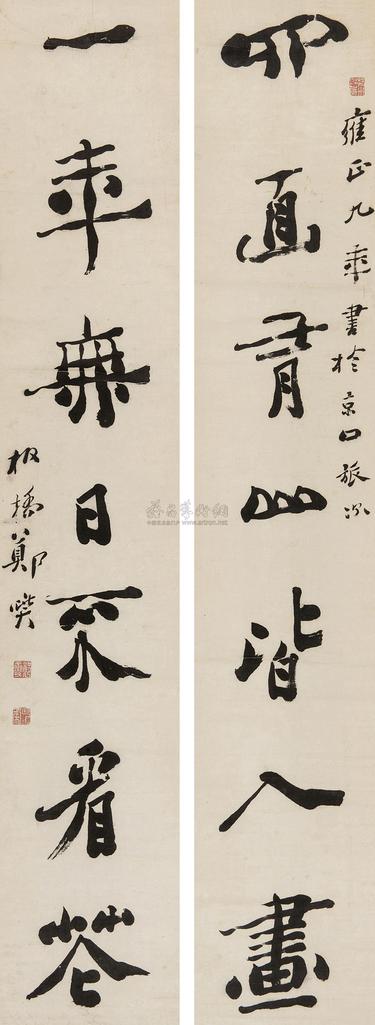 雍正九年書於京口旅次
四面青山皆入畫
一年無日不看花
板橋鄭燮
雅昌藝術網
www.artron.net